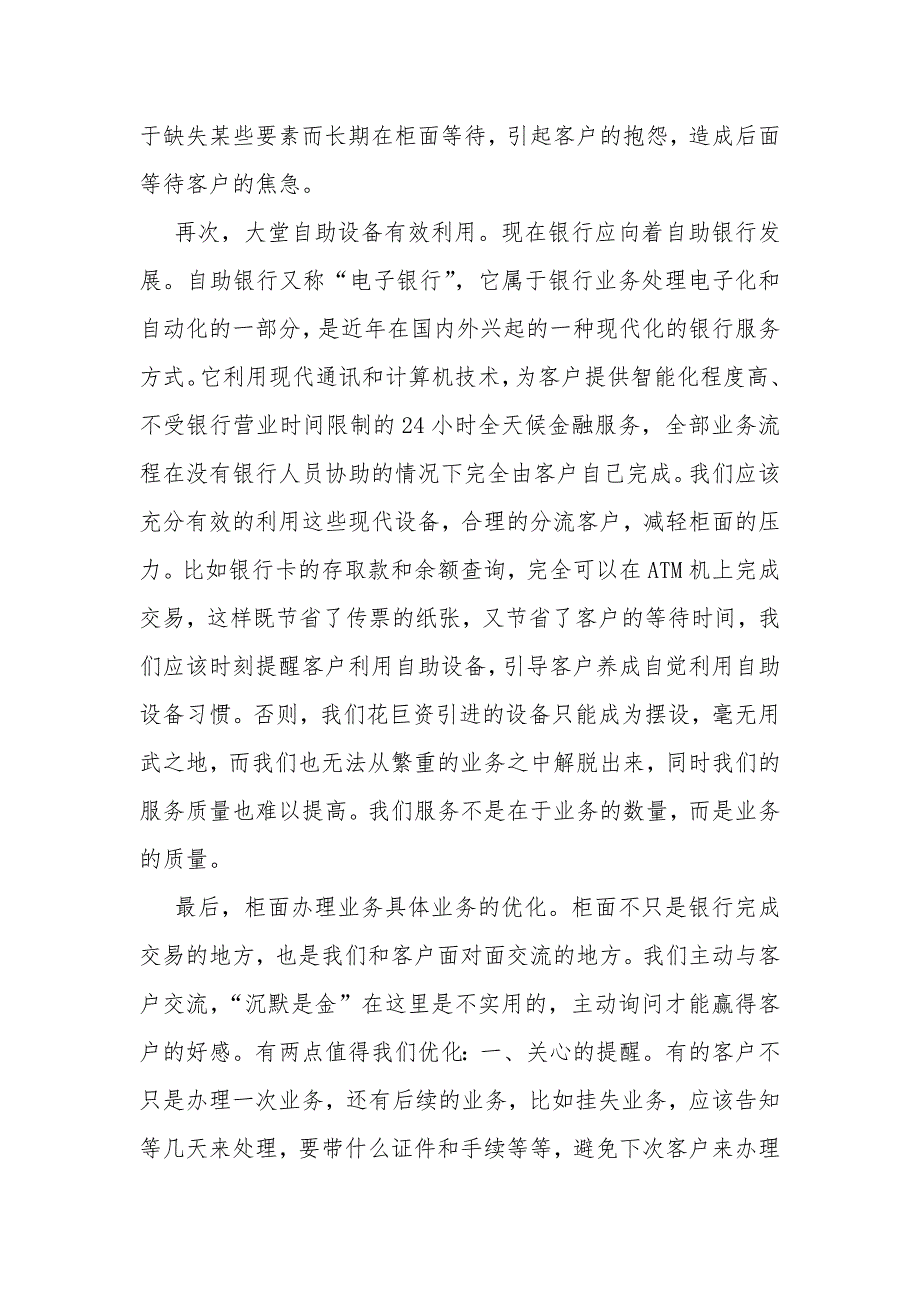 于缺失某些要素而长期在柜面等待，引起客户的抱怨，造成后面
等待客户的焦急。
再次，大堂自助设备有效利用。现在银行应向着自助银行发
展。自助银行又称“电子银行”，它属于银行业务处理电子化和
自动化的一部分，是近年在国内外兴起的一种现代化的银行服务
方式。它利用现代通讯和计算机技术，为客户提供智能化程度高、
不受银行营业时间限制的 24 小时全天候金融服务，全部业务流
程在没有银行人员协助的情况下完全由客户自己完成。我们应该
充分有效的利用这些现代设备，合理的分流客户，减轻柜面的压
力。比如银行卡的存取款和余额查询，完全可以在 ATM 机上完成
交易，这样既节省了传票的纸张，又节省了客户的等待时间，我
们应该时刻提醒客户利用自助设备，引导客户养成自觉利用自助
设备习惯。否则，我们花巨资引进的设备只能成为摆设，毫无用
武之地，而我们也无法从繁重的业务之中解脱出来，同时我们的
服务质量也难以提高。我们服务不是在于业务的数量，而是业务
的质量。
最后，柜面办理业务具体业务的优化。柜面不只是银行完成
交易的地方，也是我们和客户面对面交流的地方。我们主动与客
户交流，“沉默是金”在这里是不实用的，主动询问才能赢得客
户的好感。有两点值得我们优化：一、关心的提醒。有的客户不
只是办理一次业务，还有后续的业务，比如挂失业务，应该告知
等几天来处理，要带什么证件和手续等等，避免下次客户来办理